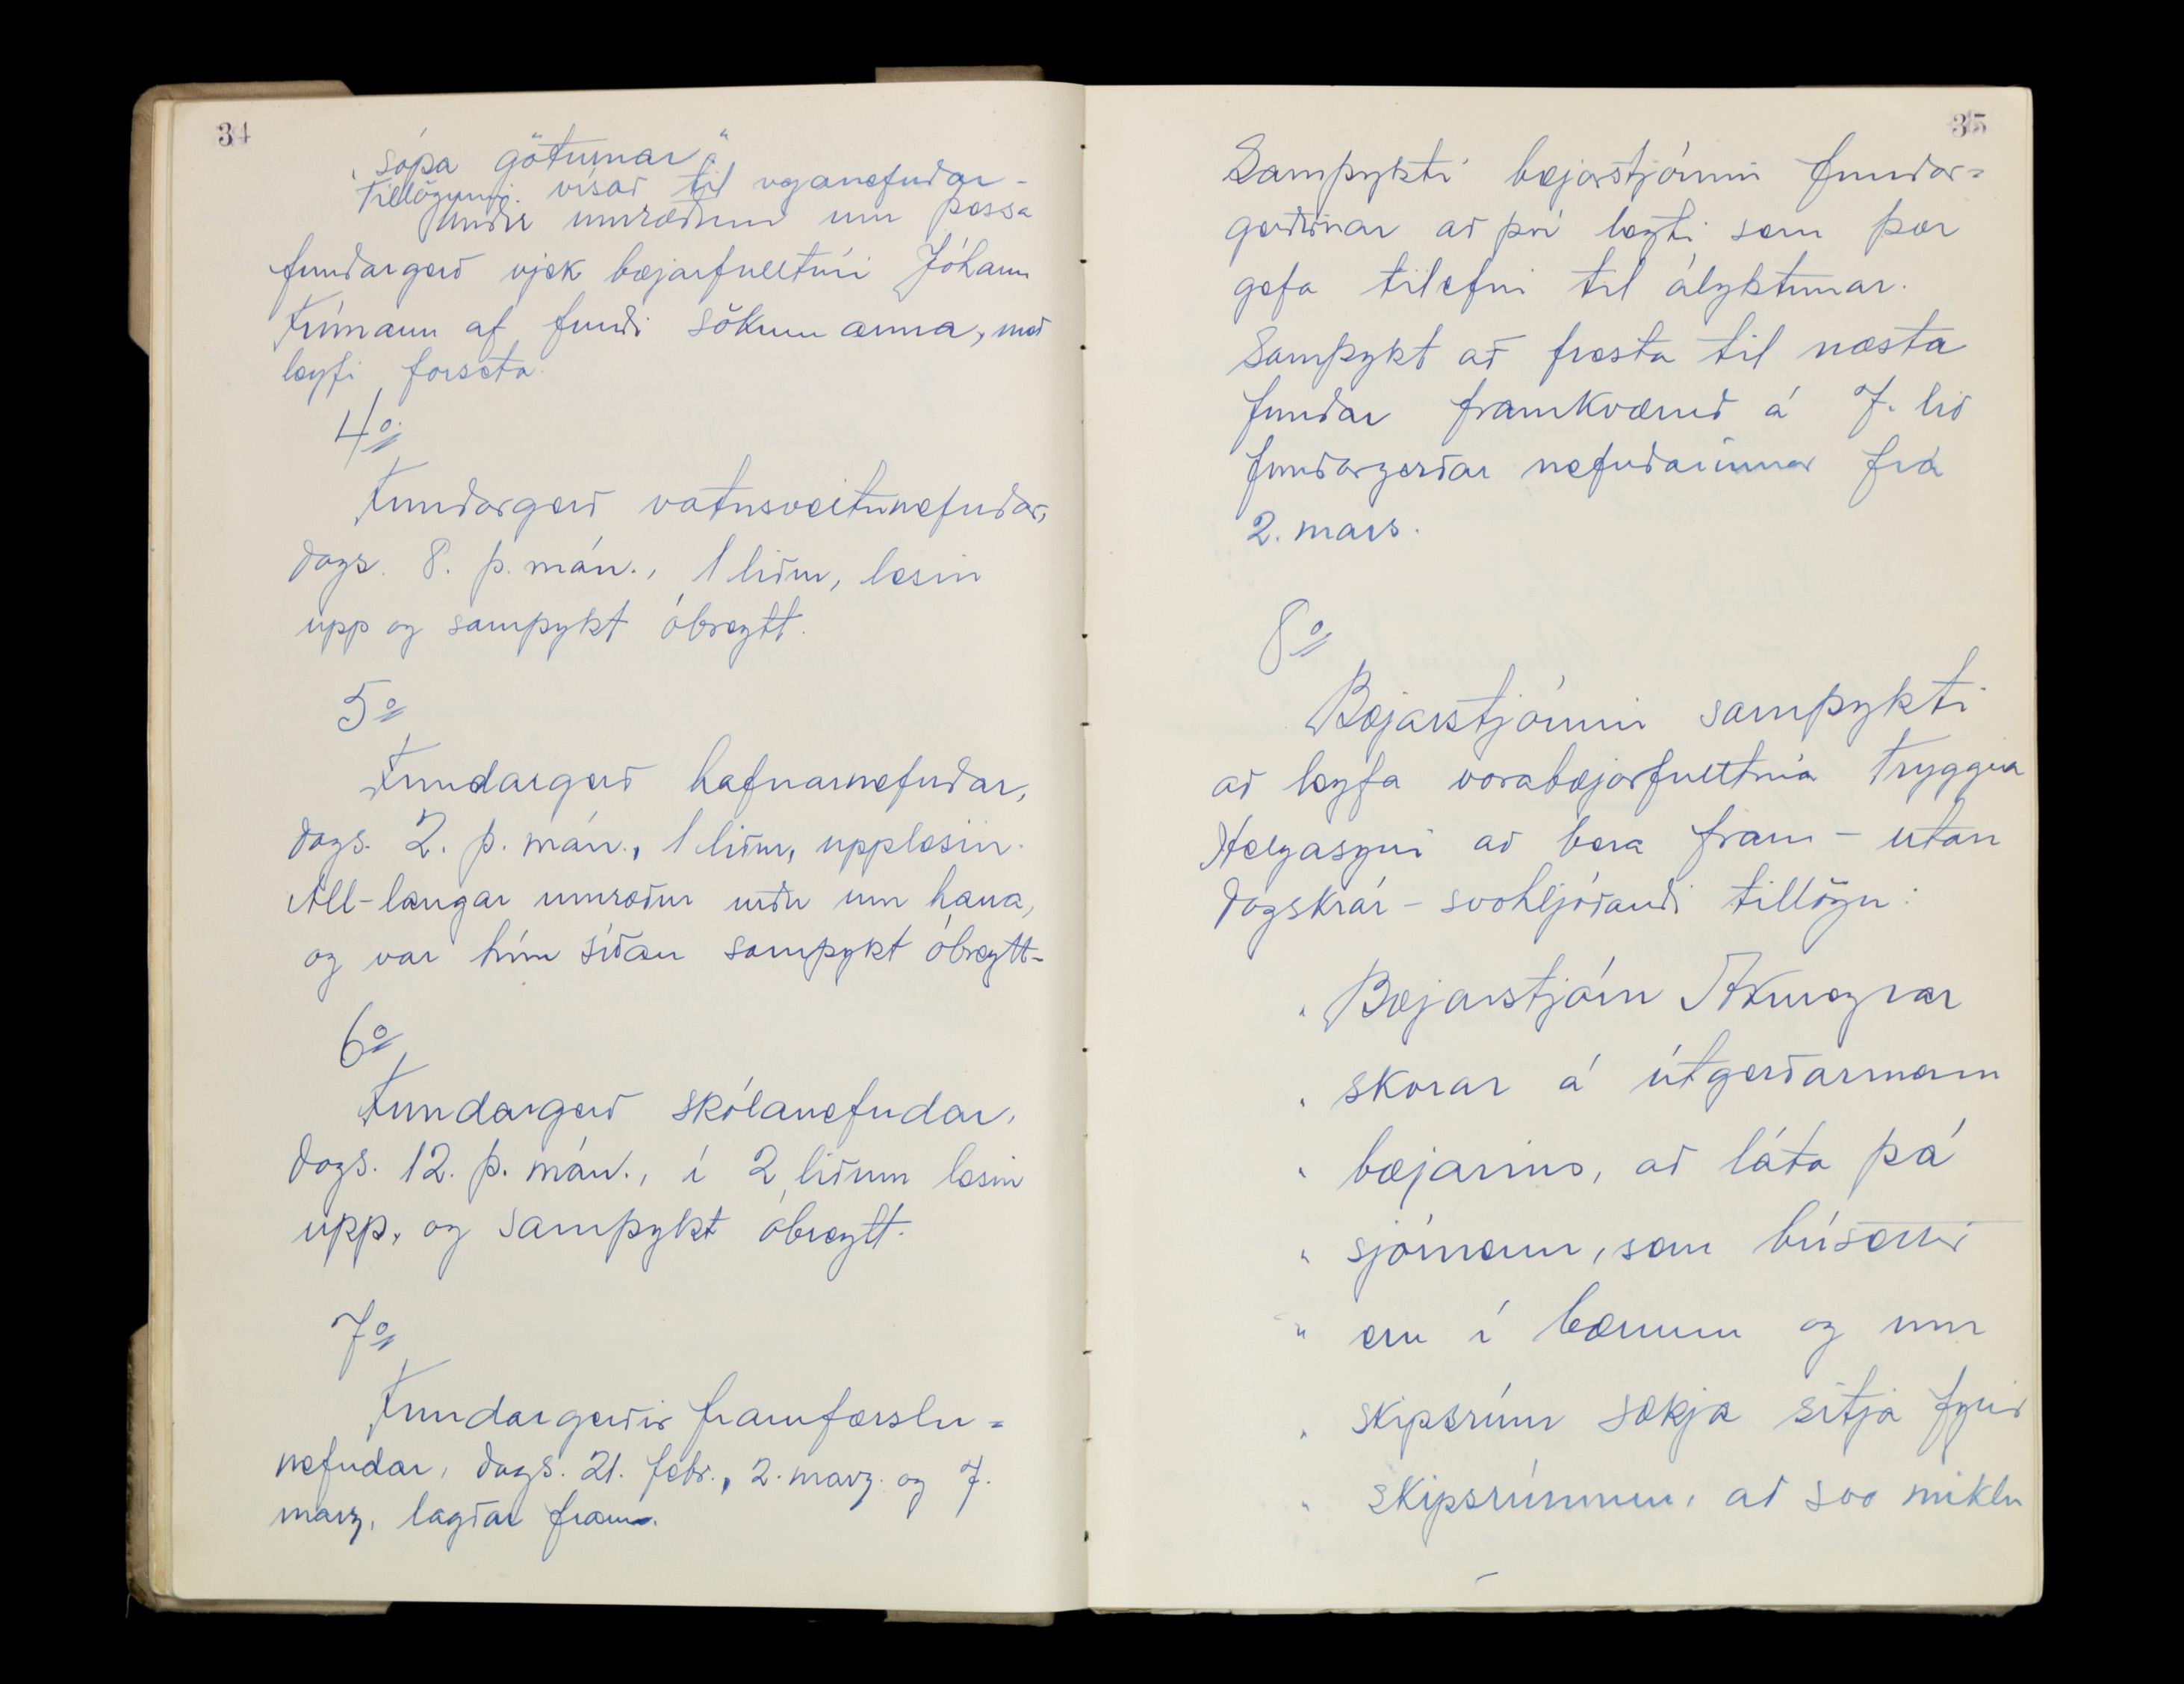 34
„sópa göturnar“
Tillögunni vísað til veganefndar -
Undir umræðum um þessa
fundargerð vjek bæjarfulltrúi Jóhann
Frímann af fundi sökum anna, með
leyfi forseta.
4o
Fundargerð vatnsveitunefndar,
dags. 8. þ. mán., 1 liður, lesin
upp og samþykt óbreytt.
5o
Fundargerð hafnarnefndar,
dags. 2. þ. mán., 1 liður, upplesin.
All-langar umræður urðu um hana,
og var hún síðan samþykt óbreytt-
6o
Fundargerð skólanefndar,
dags. 12. þ. mán., í 2 liðum lesin
upp, og samþykt óbreytt.
7o
Fundargerðir framfærslu=
nefndar, dags. 21. febr., 2. marz. og 7.
marz, lagðar fram.
35
Samþykti bæjarstjórnin fundar=
gerðirnar að því leyti sem þær
gefa tilefni til ályktunar.
Samþykt að fresta til næsta
fundar framkvæmd á 7. lið
fundargerðar nefndarinnar frá
2. mars.
8o
Bæjarstjórnin samþykti
að leyfa varabæjarfulltrúa Tryggva
Helgasyni að bera fram - utan
dagskrár - svohljóðandi tillögu:
„Bæjarstjórn Akureyrar
„skorar á útgerðarmenn
„bæjarins, að láta þá
„sjómenn, sem búsettir
„eru í bænum og um
„skipsrúm sækja sitja fyrir
„skipsrúmum, að svo miklu